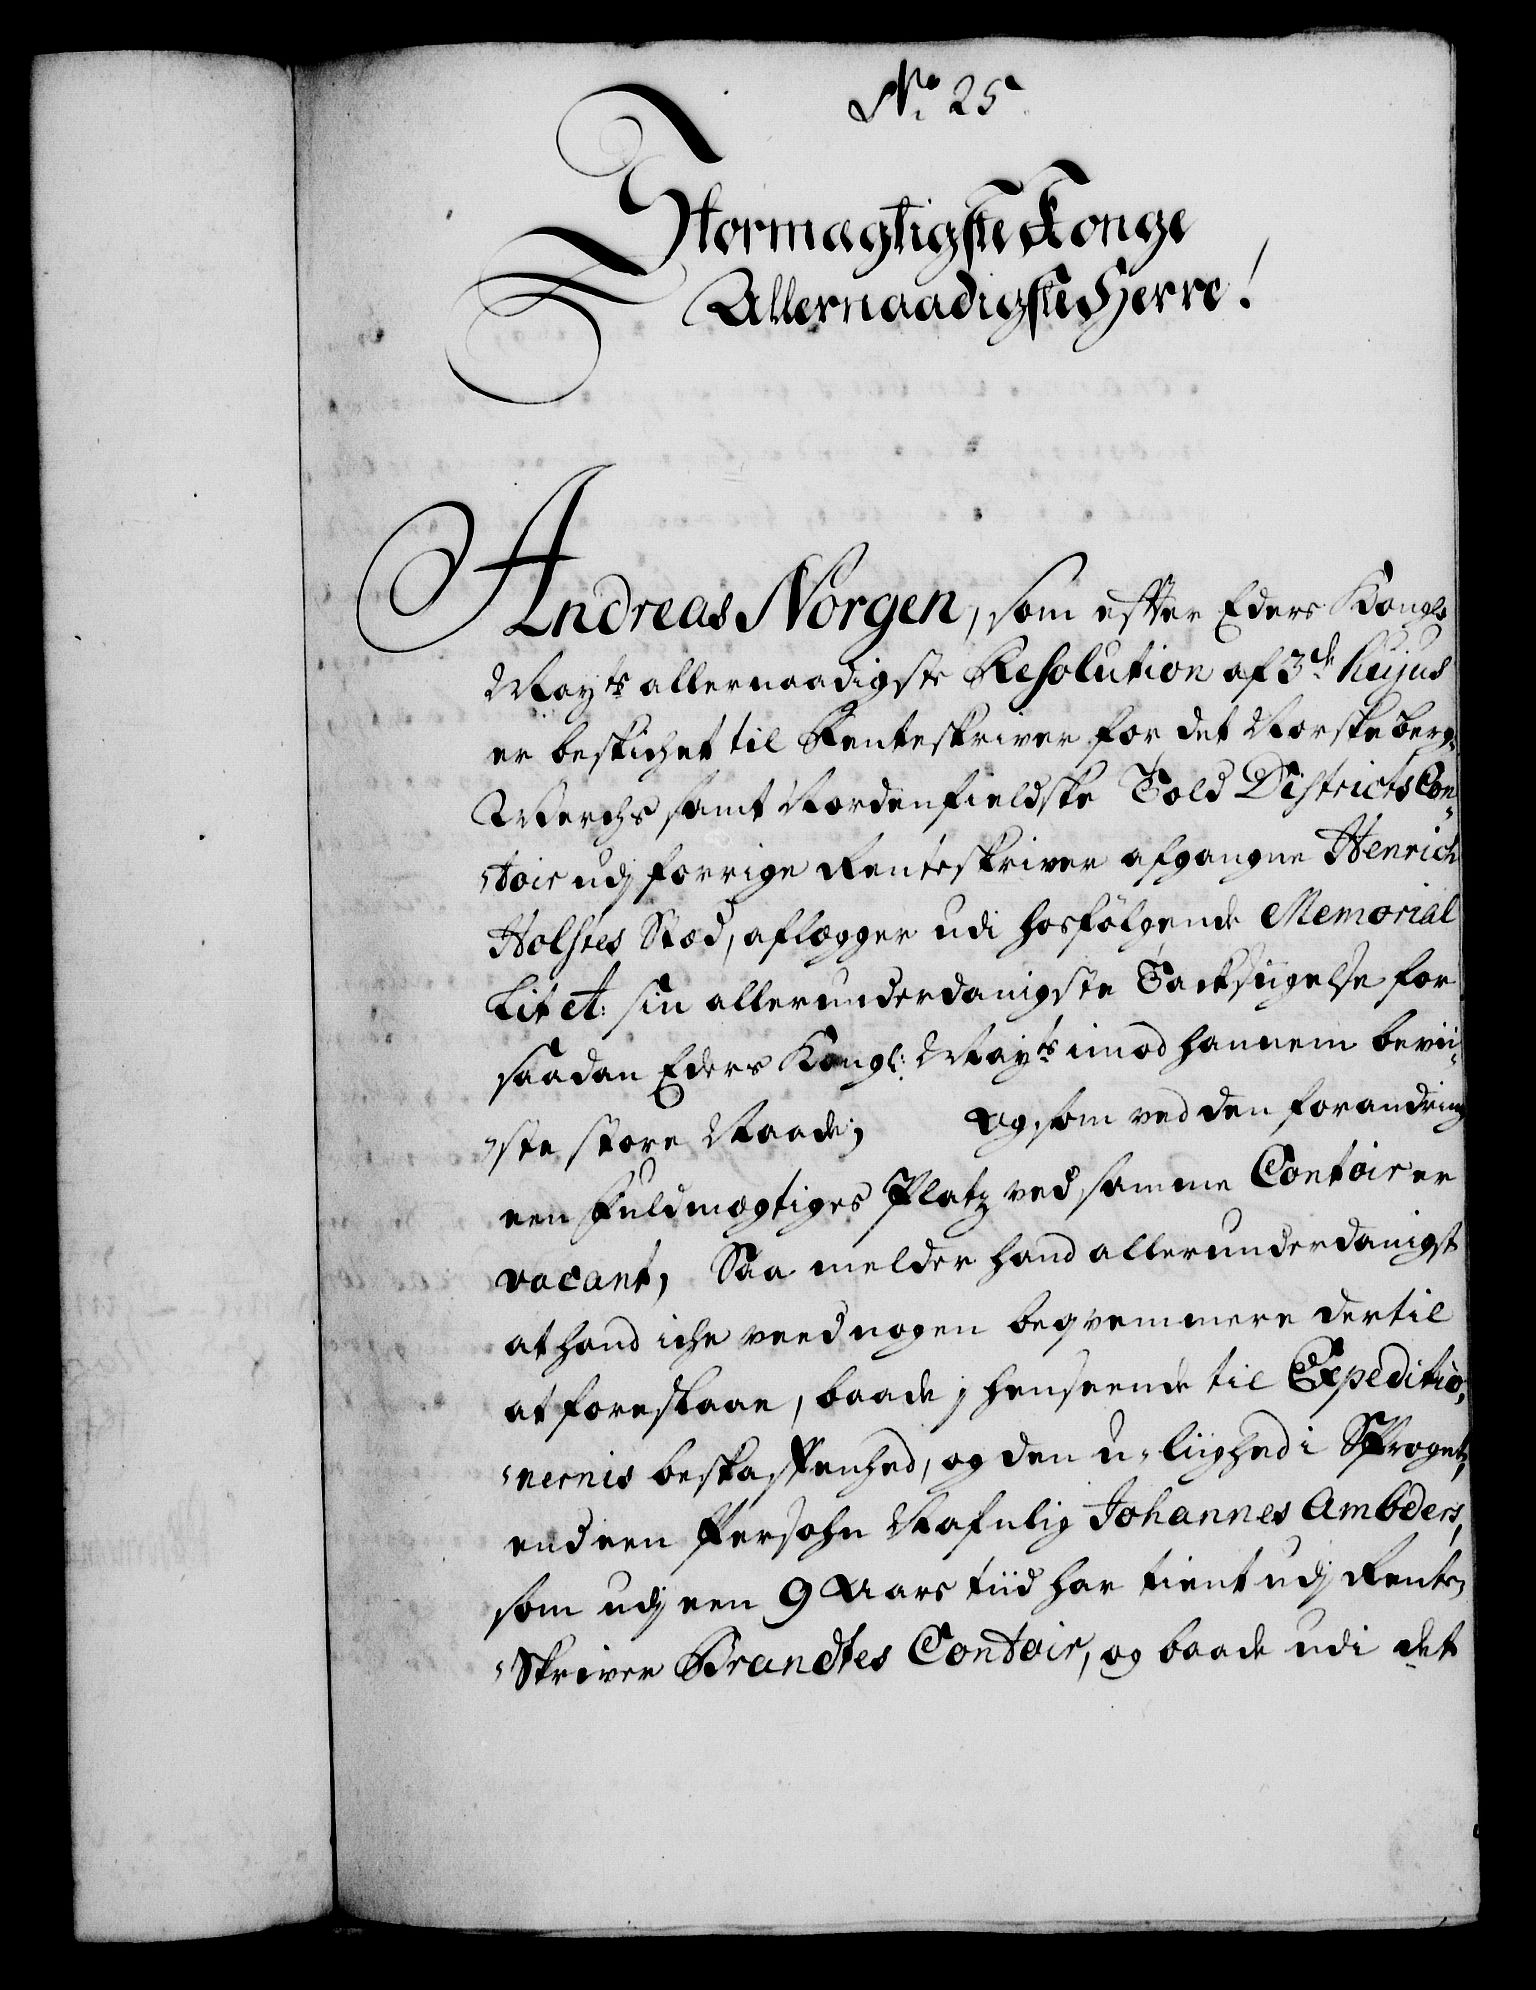 No. 25
Stormægtigste Konge
Allernaadigste Herre!
Andreas Norgen, som efter Eders Kongl:
May:ts allernaadigste Resolution af 3de hujus
er beskichet til Renteskriver for det Norske berg-
Werchs samt Nordenfieldske Told Districts Con-
-toir udj forrige Renteskriver afgangne Henrich
Holstes Stæd, aflægger udi hosfölgende Memorial
Lit A: sin allerunderdanigste Tacksigelse for
saadan Eders Kongl: May:ts imod hannem bevii-
-ste store Naade; og som ved den forandring
een Fuldmægtiges Platz ved samme Contoir er
vacant, Saa melder hand allerunderdanigst
at hand iche veed nogen beqvemmere dertil
at foreslaae, baade j henseende til Expeditio-
-nernis beskaffenhed, og den u-liighed i Sproget,
end een Persohn Nafnlig Johannes Amböders,
som udj een 9 Aars tiid har tient udj Rente-
-Skriver Brandtes Contoir, og baade udi det